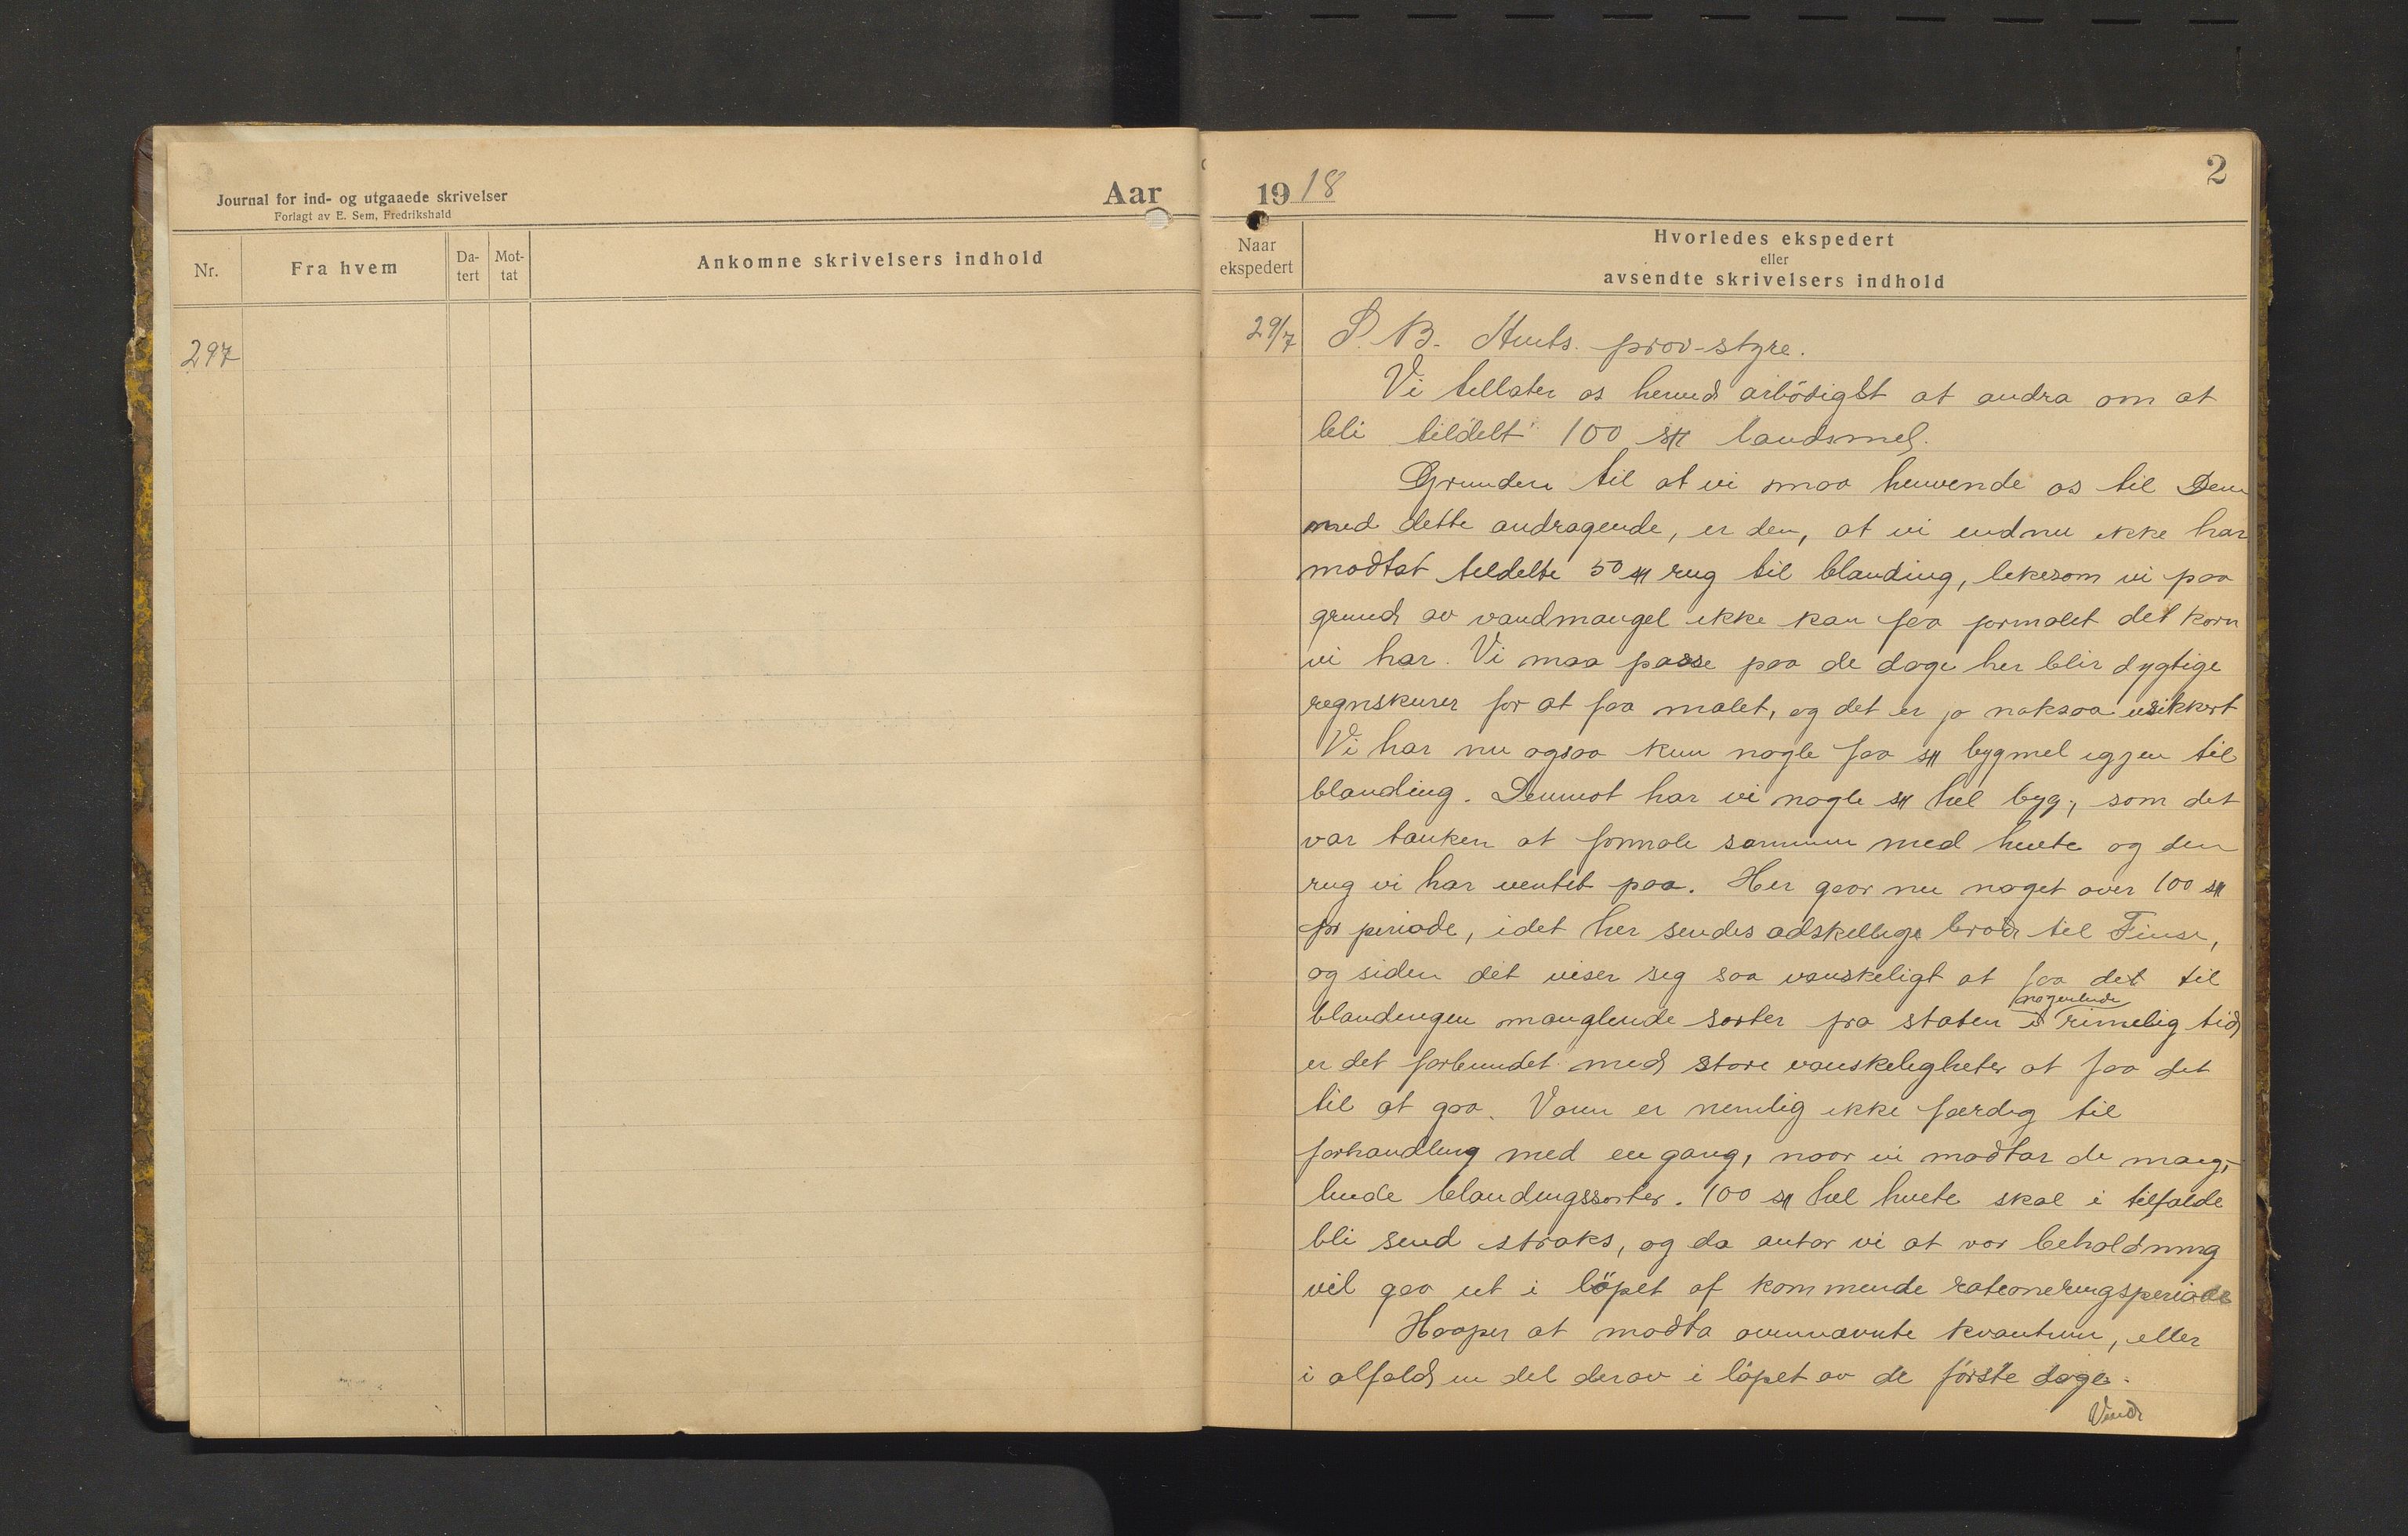 Journal for ind- og utgaaede skrivelser
Forlagt av E. Sem, Fredrikshald
Aar
Nr.
Fra hvem
Da-
tert
Mot-
tat
Ankomne skrivelsers indhold
297
1918
2
Naar
ekspedert
Hvorledes ekspedert
eller
avsendte skrivelsers indhold
29/7 S. B. Amts. prov-styre.
Vi tillater os herved ærbödigst at andra om at
bli tildelt 100 sk landsmel.
Grunden til at vi maa henvende os til Dem
med dette andragende, er den, at vi endnu ikke har
modtat tildelte 50 sk rug til blanding, likesom vi paa
grund av vandmangel ikke kan faa formalet det korn
vi har. Vi maa passe paa de dage her blir dygtige
regnskurer for at faa malet, og det er jo noksaa usikkert
Vi har nu ogsaa kun nogle faa sk bygmel igjen til
blanding. Derimot har vi nogle sk hel byg, som det
var tanken at formale sammen med hvete og den
rug vi har ventet paa. Her gaar nu noget over 100 sk
pr periode, idet her sendes adskellige bröd til Finse,
og siden det viser seg saa vanskeligt at faa det til
blandingen manglende sorter fra staten i nogenlunde rimelig tid
er det forbundet med store vanskeligheter at faa det
til at gaa. Varen er nemlig ikke færdig til
forhandling med en gang, naar vi modtar de mang-
lende blandingssorter. 100 sk hel hvete skal i tilfælde
bli send straks, og da antar vi at vor beholdning
vil gaa ut i löpet af kommende rationeringsperiode
Haaper at modta ovennævnte kvantum, eller
i alfald en del derav i löpet av de förste dage.
Vend